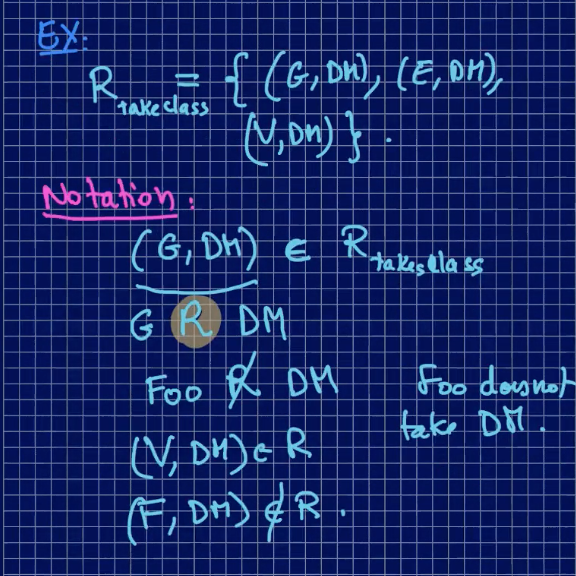 EX:
R takeclass = { (G, DM), (E, DM),
(V, DM) } .
Notation:
(G, DM) ∈ R takesclass
G R DM
Foo R̸ DM Foo does not
take DM.
(V, DM) ∈ R
(F, DM) ∉ R .